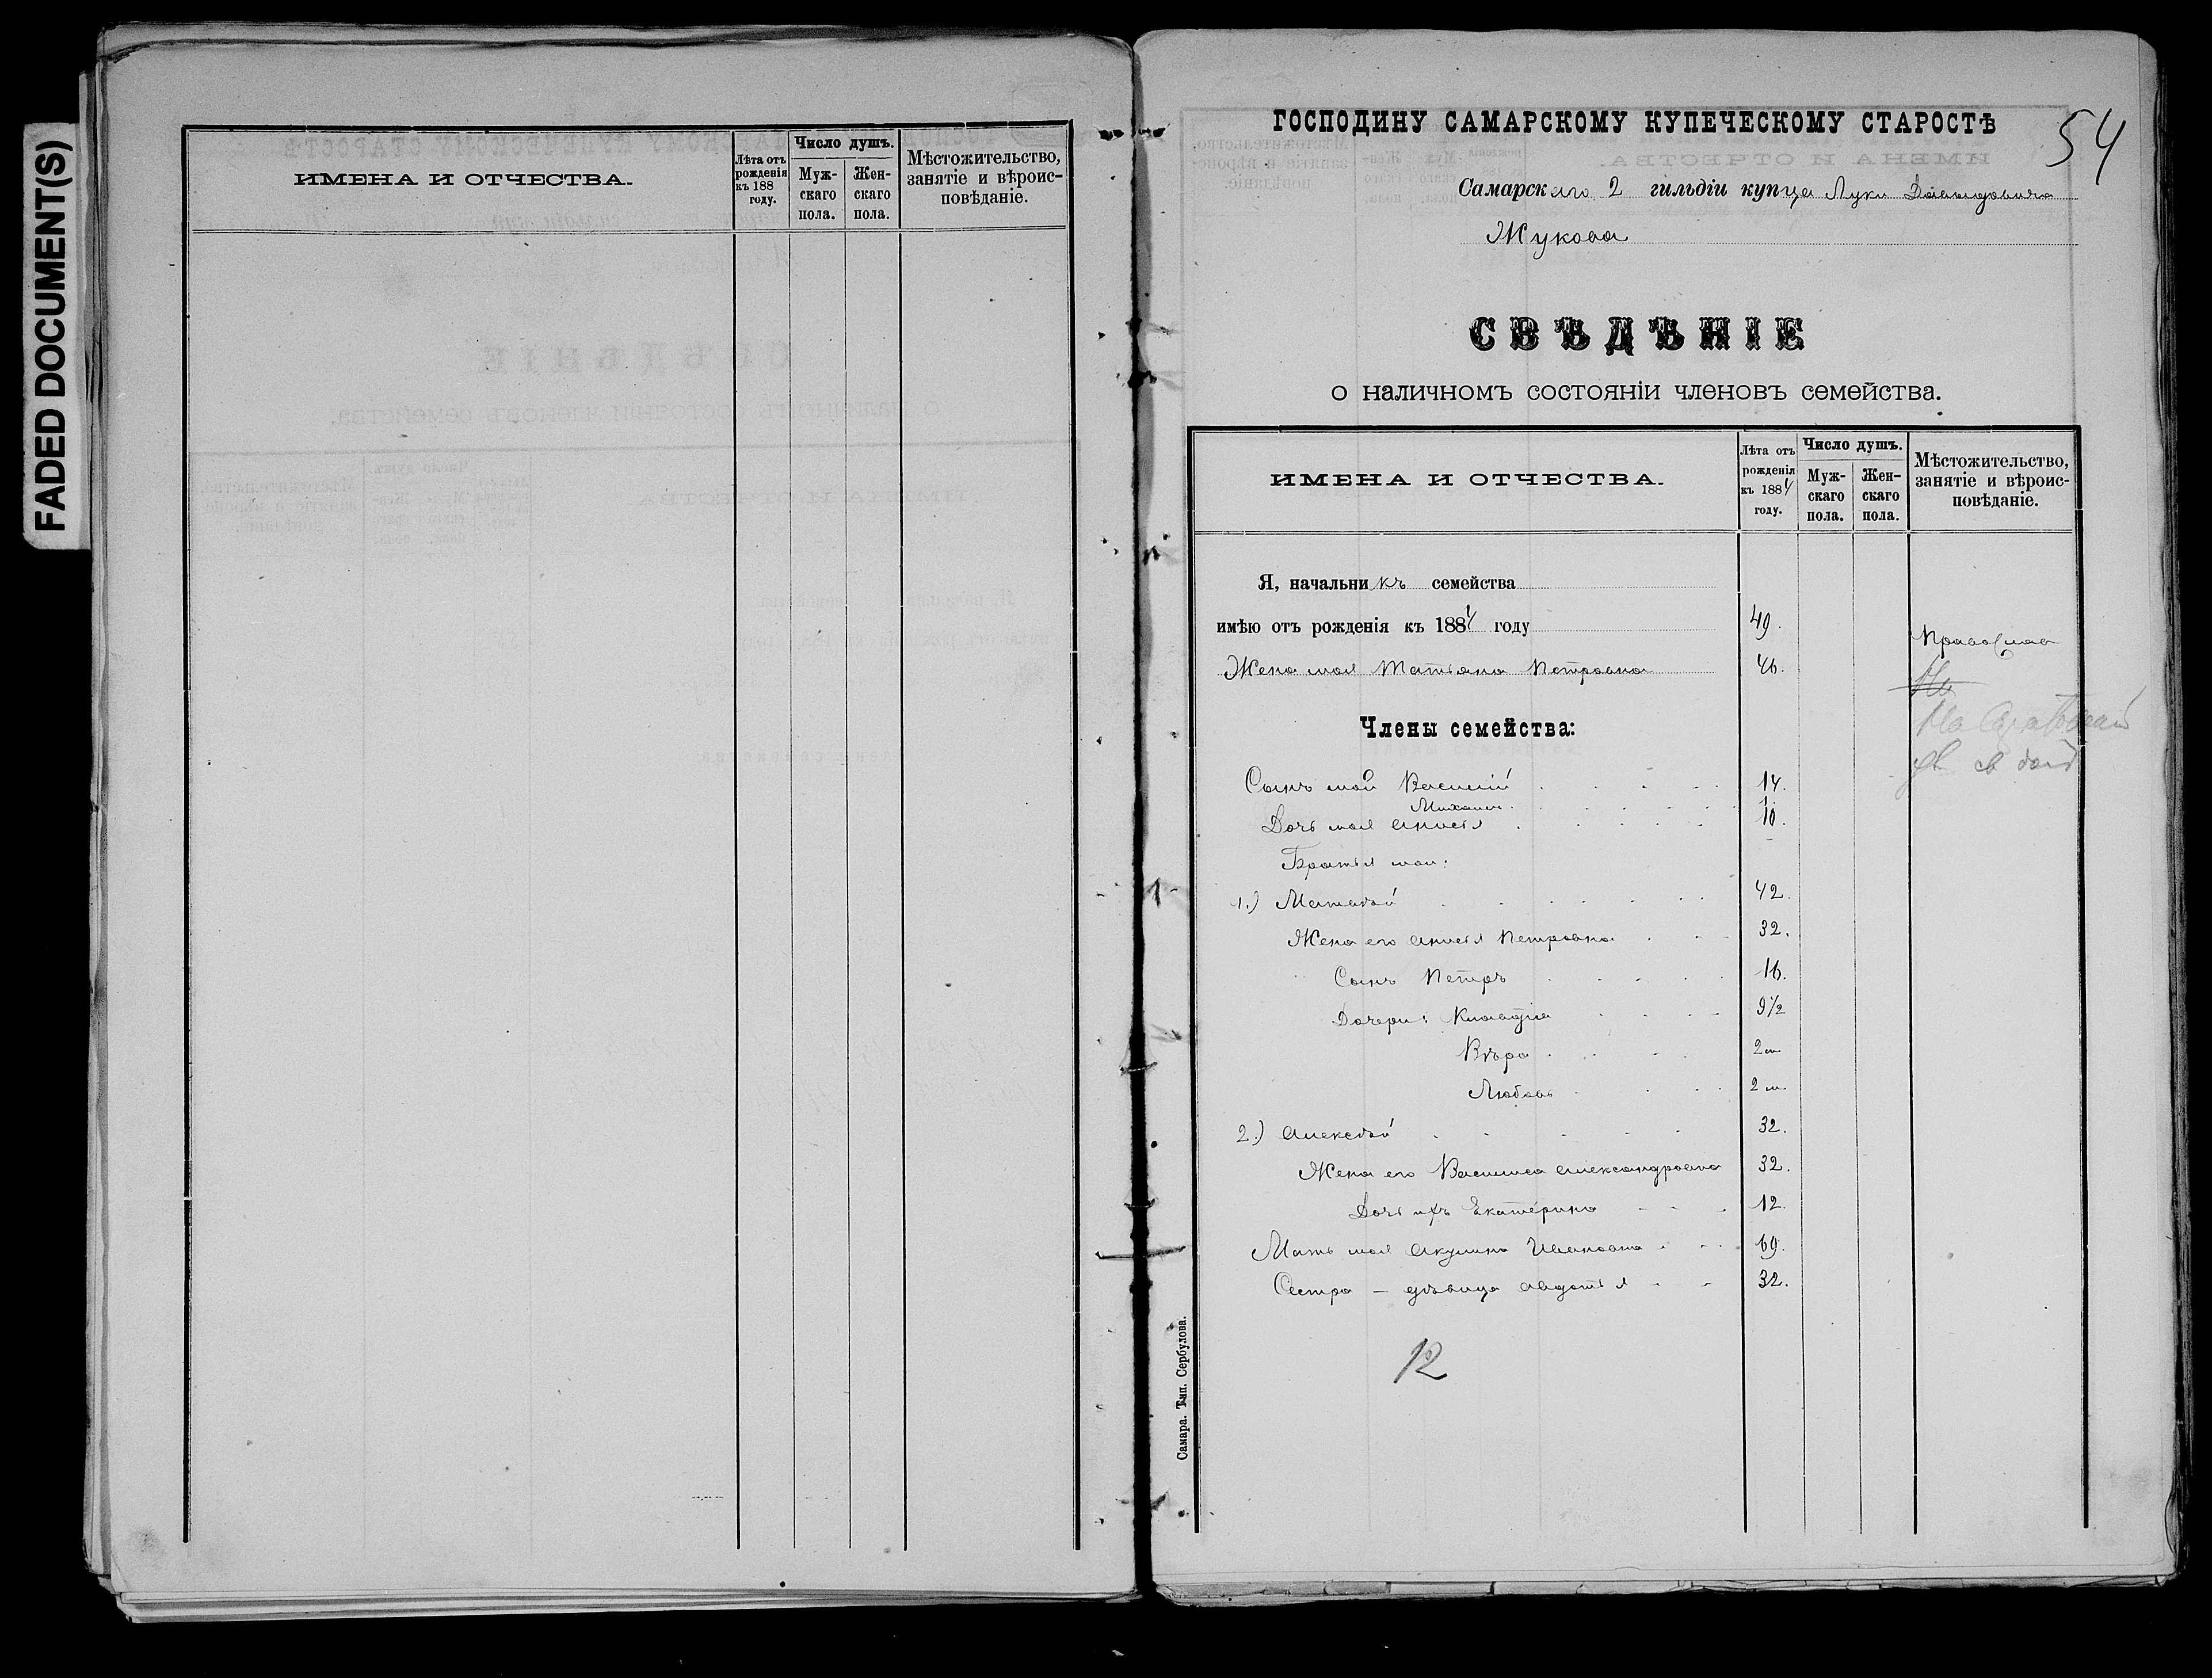 FADED DOCUMENT(S)
ИМЕНА И ОТЧЕСТВА.
Лѣта отъ
рожденія
къ 188
году.
Число душъ.
Муж-
скаго
пола.
Жен-
скаго
пола.
Мѣстожительство,
занятіе и вѣроис-
повѣданіе.
54
ГОСПОДИНУ САМАРСКОМУ КУПЕЧЕСКОМУ СТАРОСТѢ
Самарскаго 2 гильдіи купца Луки Давыдовича
Жукова
СВѢДѢНІЕ
о наличномъ состояніи членовъ семейства.
ИМЕНА И ОТЧЕСТВА.
Лѣта отъ
рожденія
къ 1884
году.
Число душъ.
Муж-
скаго
пола.
Жен-
скаго
пола.
Мѣстожительство,
занятіе и вѣроис-
повѣданіе.
Я, начальникъ семейства
имѣю отъ рожденія къ 1884 году 49.
Православ
Жена моя Татьяна Петровна 46.
На
Члены семейства:
Сынъ мой Василій 14.
Михаил
Дочь моя Анисья 10.
Братья мои:
1.) Матвѣй 42.
Жена его Анисья Петровна 32.
Сынъ Петръ 16.
Дочери: Клавдія 9½
Вѣра 2 м
Любовь 2 м
2.) Алексѣй 32.
Жена его Василиса Александровна 32.
Дочь ихъ Екатерина 12.
Мать моя Акулина Ивановна 69.
Сестра — дѣвица Авдотья 32.
12
Самара. Тип. Сербулова.